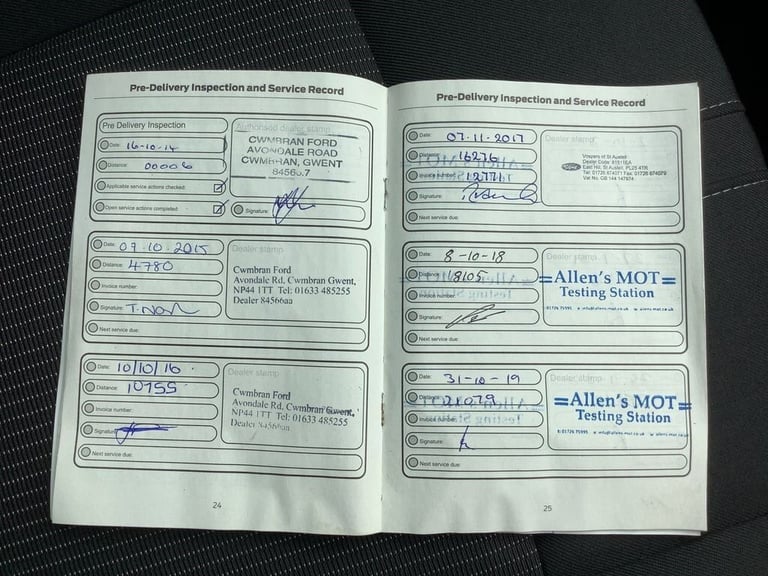 Pre-Delivery Inspection and Service Record
Pre Delivery Inspection
Date: 16-10-14
Distance: 00006
Applicable service actions checked:
Open service actions completed:
Authorised dealer stamp
CWMBRAN FORD
AVONDALE ROAD
CWMBRAN, GWENT
Signature:
Date: 09.10.2015
Distance: 4780
Invoice number:
Signature:
Next service due:
Dealer stamp
Cwmbran Ford
Avondale Rd, Cwmbran Gwent,
NP44 1TT Tel: 01633 485255
Dealer 84566aa
Date: 10/10/16
Distance: 10755
Invoice number:
Signature:
Next service due:
Dealer stamp
Cwmbran Ford
Avondale Rd, Cwmbran Gwent,
NP44 1TT Tel: 01633 485255
Dealer 84566aa
24
Pre-Delivery Inspection and Service Record
Date: 07.11.2017
Distance: 16276
Invoice number: 12771
Signature:
Next service due:
Dealer stamp
Vospers of St Austell
East Hill, St Austell, PL25 4TR
Date: 8-10-18
Distance: 18105
Invoice number:
Signature:
Next service due:
Dealer stamp
Allen's MOT
Testing Station
Date: 31-10-19
Distance: 21079
Invoice number:
Signature:
Next service due:
Dealer stamp
Allen's MOT
Testing Station
25